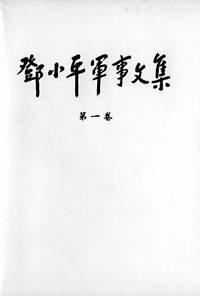 鄧小平軍事文集
第一卷